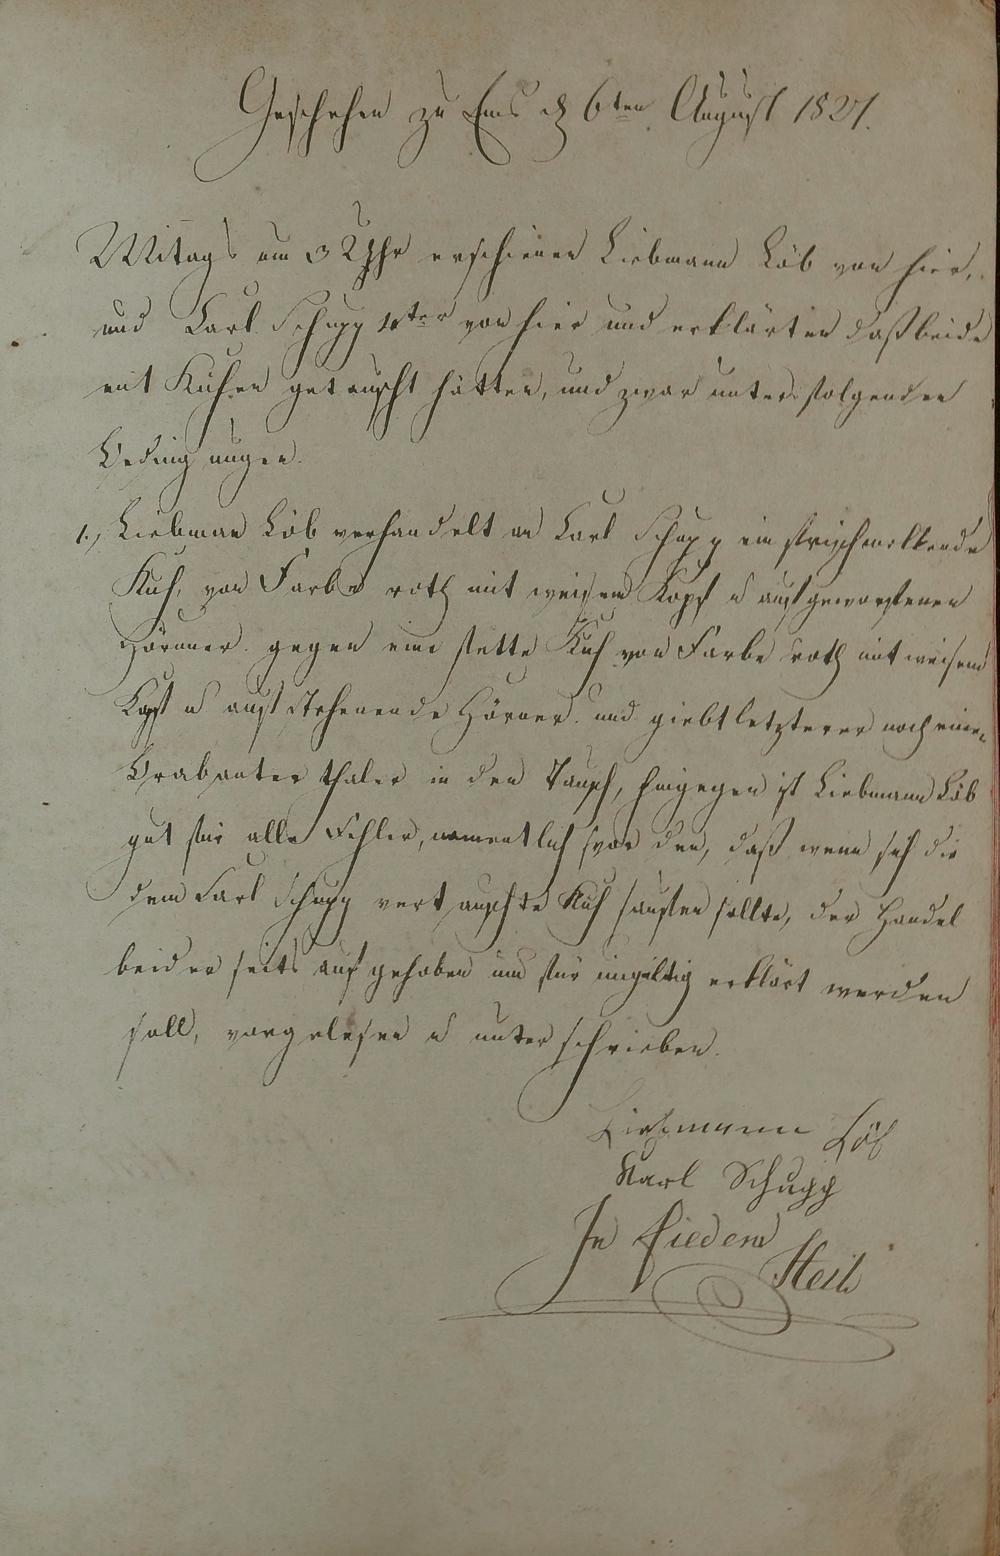 Geschehen zu Ems d 6ten August 1821.
Mitags um 3 Uhr erschienen Liebmann Löb von hier,
und Carl Schupp 1ter von hier und erklärten daß beide
mit Kühen getauscht hätten, und zwar unter folgenden
Bedingungen.
1., Liebman Löb verhandelt an Carl Schupp ein frischmelkende
Kuh, von Farbe roth mit weisem Kopf u aufgeworfenen
Hörnner. gegen eine fette Kuh von Farbe roth mit weisem
Kopf u aufstehenende Hörner. und giebt letzterer noch einen
Brabanter thaler in den Tausch, hingegen ist Liebmann Löb
gut für alle Fehler, namentlich vor den, daß wenn sich die
dem Carl Schupp vertauschte Kuh saufen sollte, der Handel
beiderseits aufgehoben und für ungültig erklärt werden
soll, vorgelesen u unterschrieben.
Liebmann Löb
Karl Schupp
In fidem